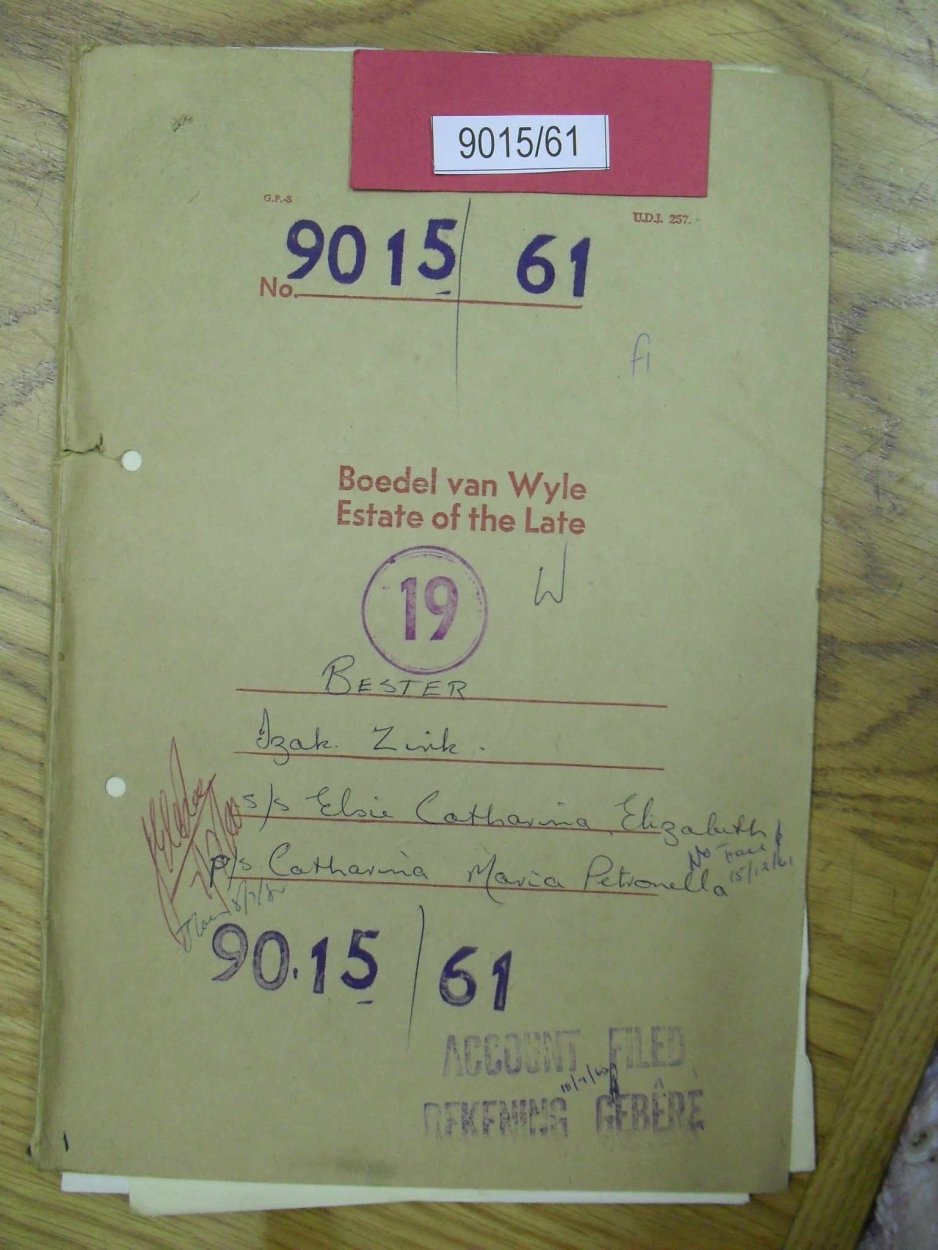 9015/61
G.P.-S
U.D.J. 257.
9015 / 61
No.
Boedel van Wyle
Estate of the Late
19
W
BESTER
Izak Zirk.
s/s Elsie Catharina Elizabeth
No Trace
p/s Catharina Maria Petronella
15/12/61
90.15 / 61
ACCOUNT FILED
REKENING GEBÊRE